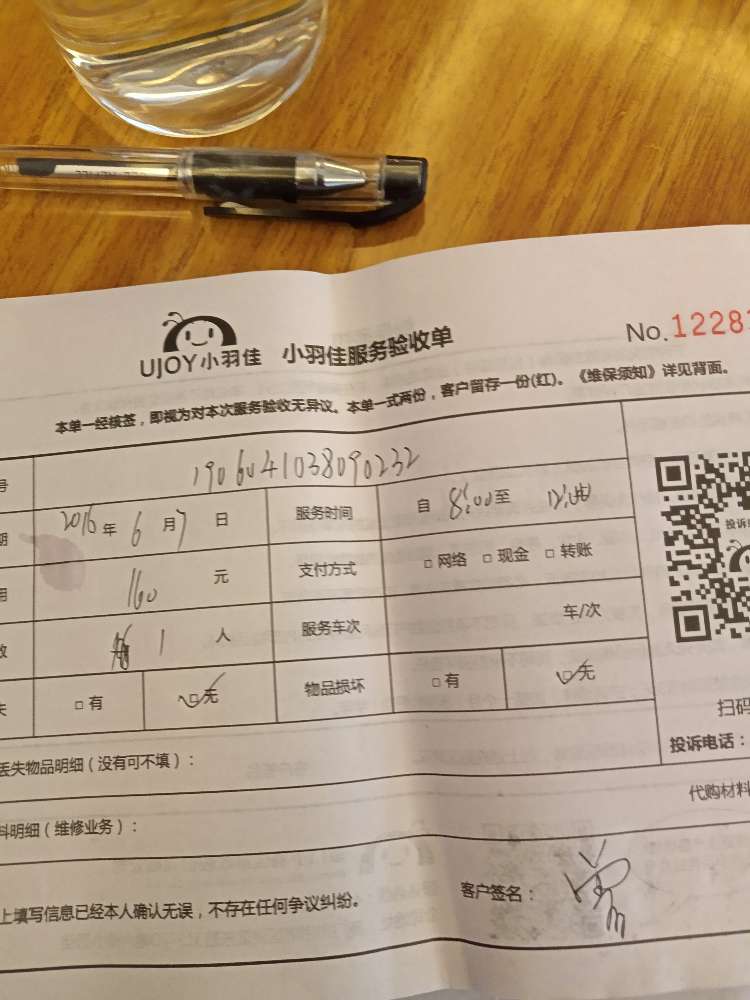 UJOY小羽佳 小羽佳服务验收单 No.12281
本单一经核签，即视为对本次服务验收无异议。本单一式两份，客户留存一份(红)。《维保须知》详见背面。
号 1906041038090232
期 2016年6月7日 服务时间 自8:00至12:00
用 160元 支付方式 □网络 □现金 □转账
数 1人 服务车次 车/次
失 □有 □无 物品损坏 □有 □无
投诉
扫码
投诉电话：
丢失物品明细（没有可不填）：
代购材料
料明细（维修业务）：
上填写信息已经本人确认无误，不存在任何争议纠纷。 客户签名：